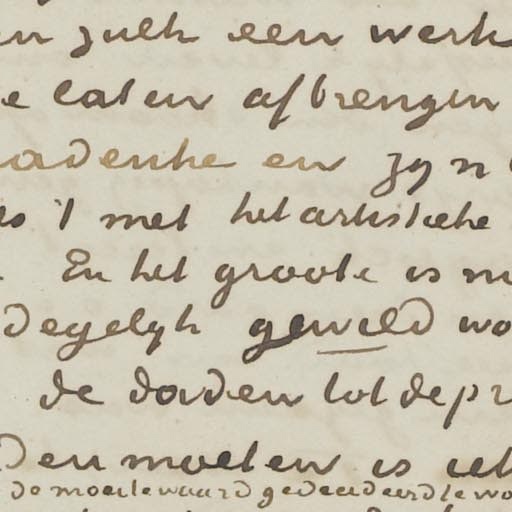 en zulk een werk
e laten afbrengen
adenke en zyn
is 't met het artistieke
En het groote is
degelyk gewild wo
de daden tot de pr
den moeten is
de moeite waard gedecideerd te wo